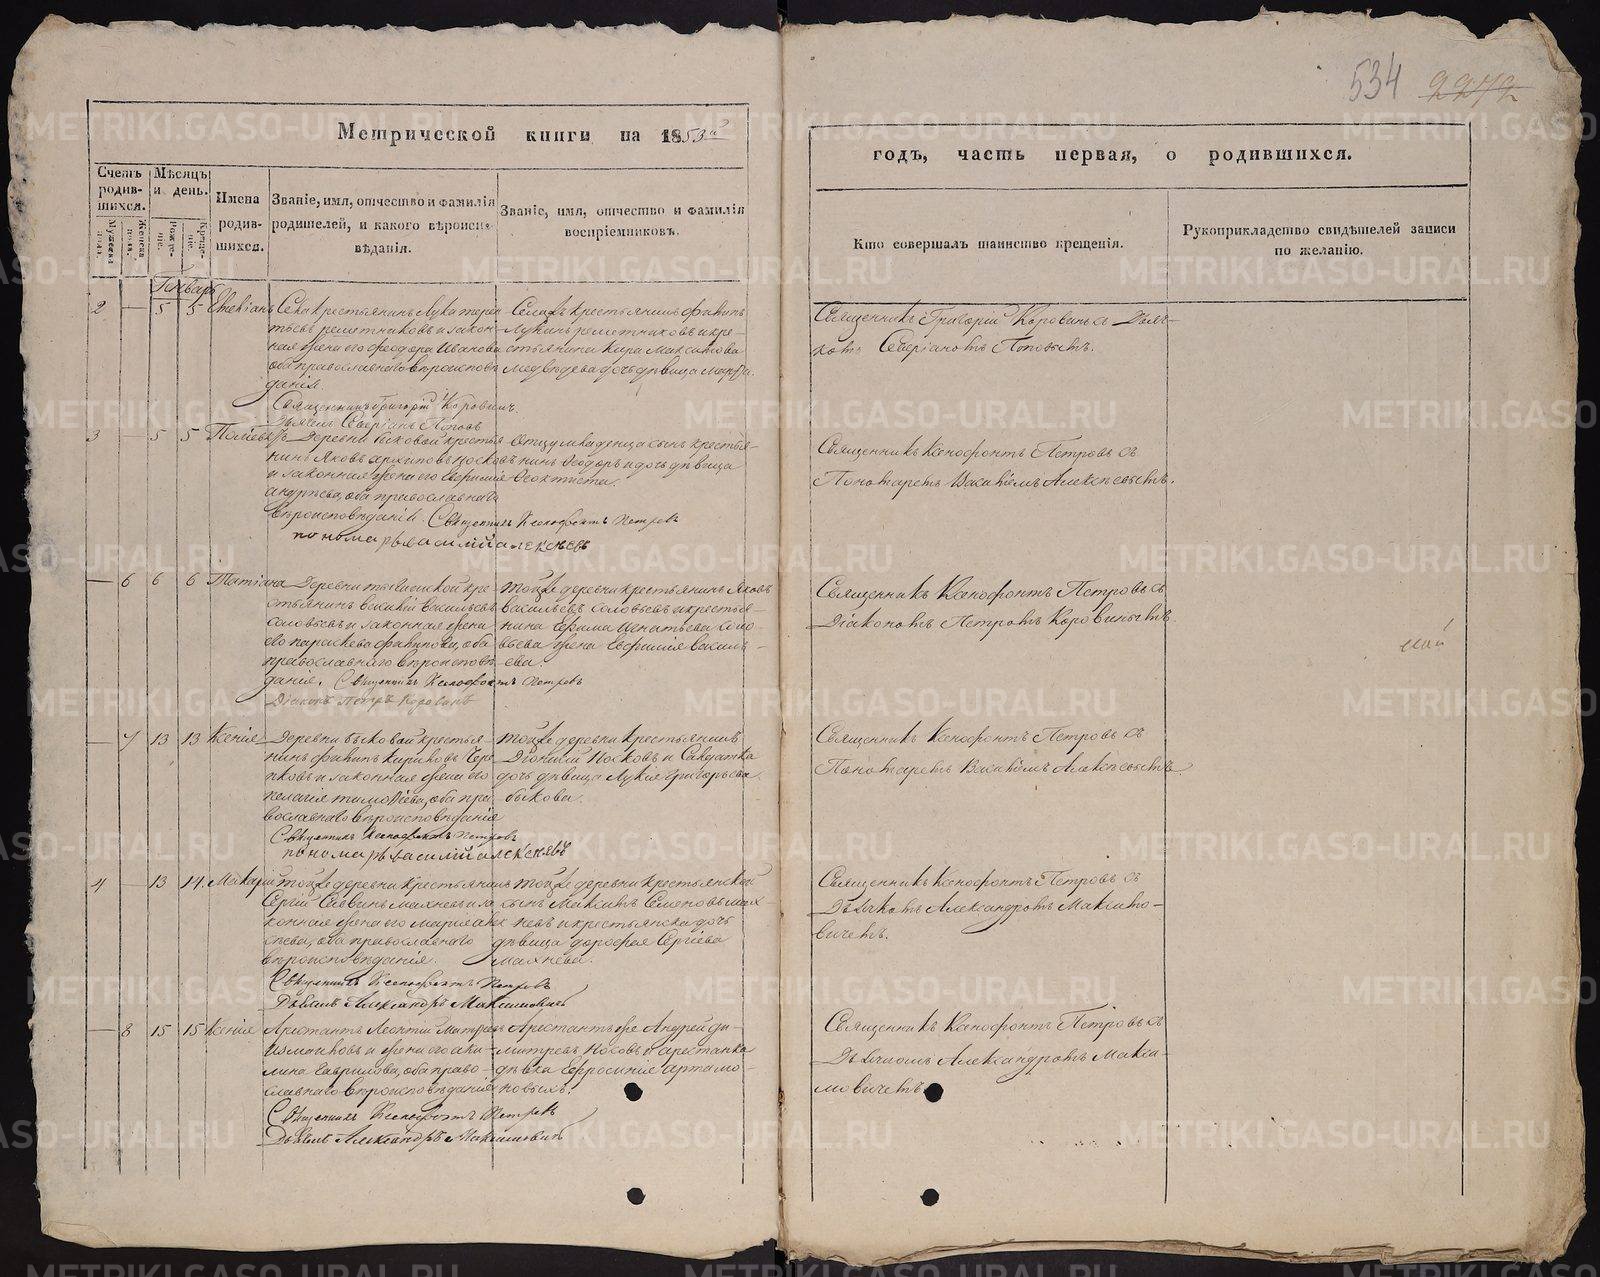 534
Метрической книги на 1853й
годъ, часть первая, о родившихся.
Счетъ родив-
шихся.
Мѣсяцъ
и день.
Имена
родив-
шихся.
Званіе, имя, отчество и фамилія
родителей, и какого вѣроиспо-
вѣданія.
Званіе, имя, отчество и фамилія
воспріемниковъ.
Кто совершалъ таинство крещенія.
Рукоприкладство свидѣтелей записи
по желанію.
Мужеска
пола.
Женска
пола.
Рожде-
ніе.
Креще-
ніе.
Январь
2 — 5 5
Села крестьянинъ Лука
Решетниковъ и закон-
ная жена его Феодора Иванова
оба православнаго вѣроиспов
данія.
Священникъ Григорій Коровинъ.
Дьячекъ Северіанъ Поповъ
Селахъ крестьянинъ Филипъ
Лукинъ Решетниковъ и кре-
стьянина Кира Максимова
Медведева дочь дѣвица Марѳа.
Священникъ Григорій Коровинъ съ Дьяч-
комъ Северіаномъ Поповымъ.
3 — 5 5
Деревни Быковой крестья
нинъ Яковъ Архиповъ Носковъ
и законная жена его Евфимія
Андреева, оба православнаго
вѣроисповѣданія. Священникъ Ксенофонтъ Петровъ
пономарь василій алексѣевъ
Отцу младенца сынъ крестья-
нинъ Ѳеодоръ и дочь дѣвица
Ѳеоктиста.
Священникъ Ксенофонтъ Петровъ съ
Пономаремъ Василіемъ Алексѣевымъ.
— 6 6 6 Татіана
Деревни кре
стьянинъ Василій Васильевъ
Соловьевъ и законная жена
его Параскева Филипова, оба
православнаго вѣроисповѣ
данія. Священникъ Ксенофонтъ Петровъ
Діаконъ Петръ Коровинъ
Той же деревни крестьянинъ Яковъ
Васильевъ Соловьевъ и крестья-
нина Ефима Игнатьева Соло
вьева жена Евфимія Василь-
ева.
Священникъ Ксенофонтъ Петровъ съ
Діакономъ Петромъ Коровинымъ
— 7 13 13 Ксенія
Деревни Быковой крестья-
нинъ Филипъ Кириковъ Чере
пковъ и законная жена его
Пелагія Тимоѳеева, оба пра
вославнаго вѣроисповѣданія
Священникъ Ксенофонтъ Петровъ
пономарь василій алексѣевъ
Той же деревни крестьянинъ
Діонисій Носковъ и Солдатка
дочь дѣвица Лукія Григорьева
Быкова.
Священникъ Ксенофонтъ Петровъ съ
Пономаремъ Василіемъ Алексѣевымъ.
4 — 13 14 Макарій
Той же деревни крестьянинъ
Сергій Саввинъ Махневъ и за
конная жена его Маріамна
оба православнаго
вѣроисповѣданія.
Священникъ Ксенофонтъ Петровъ
Дьячекъ Александръ Максимовичъ
Той же деревни крестьянской
сынъ Максимъ Семеновъ Мах-
невъ и крестьянска дочь
дѣвица Дорофея Сергіева
Махнева.
Священникъ Ксенофонтъ Петровъ съ
Дьячкомъ Александромъ Максимо-
вичемъ.
— 8 15 15 Ксенія
Арестантъ Леонтій Дмитріевъ
Измайловъ и жена его Аки-
лина Гаврилова, оба право-
славнаго вѣроисповѣданія
Священникъ Ксенофонтъ Петровъ
Дьячекъ Александръ Максимовичъ
Арестантъ же Андрей Ди-
митріевъ Носовъ и арестанка
дѣвка Евфросинія Артамо-
новыхъ.
Священникъ Ксенофонтъ Петровъ съ
Дьячкомъ Александромъ Макси-
мовичемъ.
METRIKI.GASO-URAL.RU